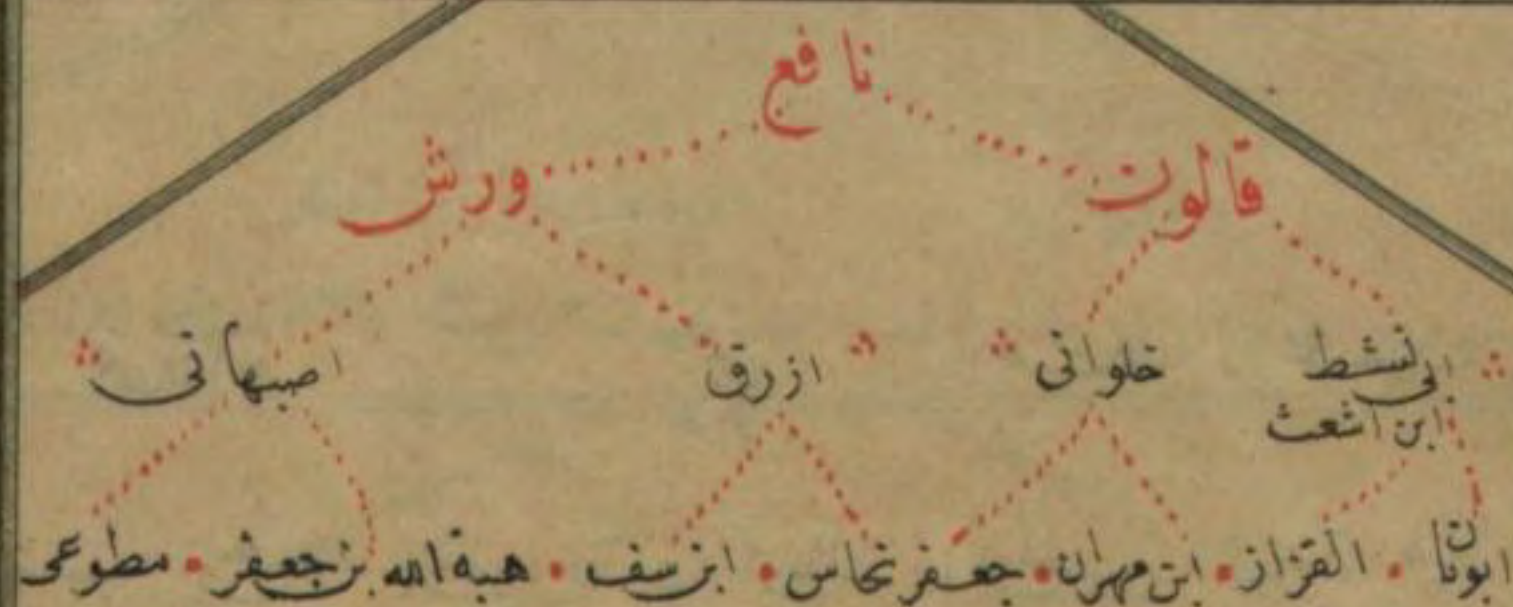 نافع
قالون ورش
ابی نشط خلوانی ازرق اصبهانی
ابن اشعث
القزاز ابن مهران جعفر نحاس ابن سف هبة الله بن جعفر مطوعی